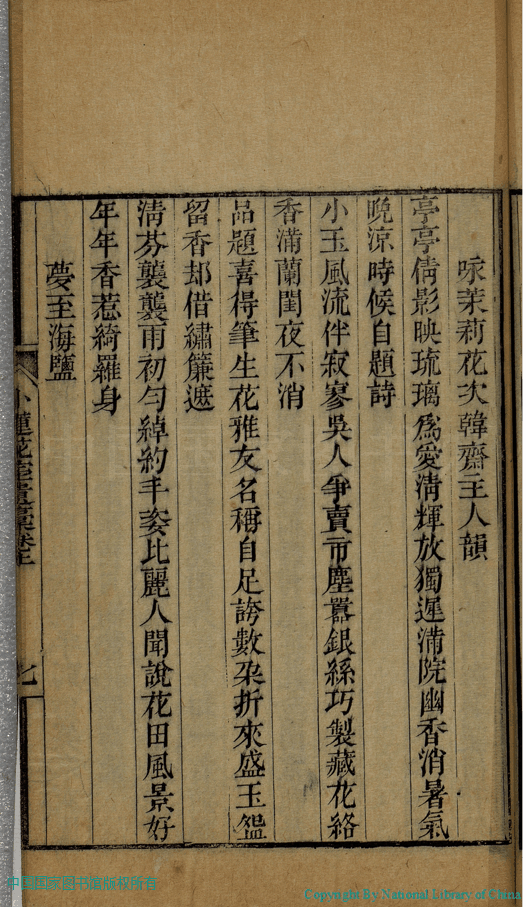 咏茉莉花次韓齋主人韻
亭亭倩影映琉璃爲愛淸輝放獨遲滿院幽香消暑氣
晚涼時候自題詩
小玉風流伴寂寥吳人爭賣市塵囂銀絲巧製藏花絡
香滿蘭閨夜不消
品題喜得筆生花雅友名稱自足誇數朶折來盛玉盌
留香却借繡簾遮
淸芬襲襲雨初勻綽約丰姿比麗人聞說花田風景好
年年香惹綺羅身
夢至海鹽
小蓮花室遺稾卷上
七
中国国家图书馆版权所有
Copyright By National Library of China